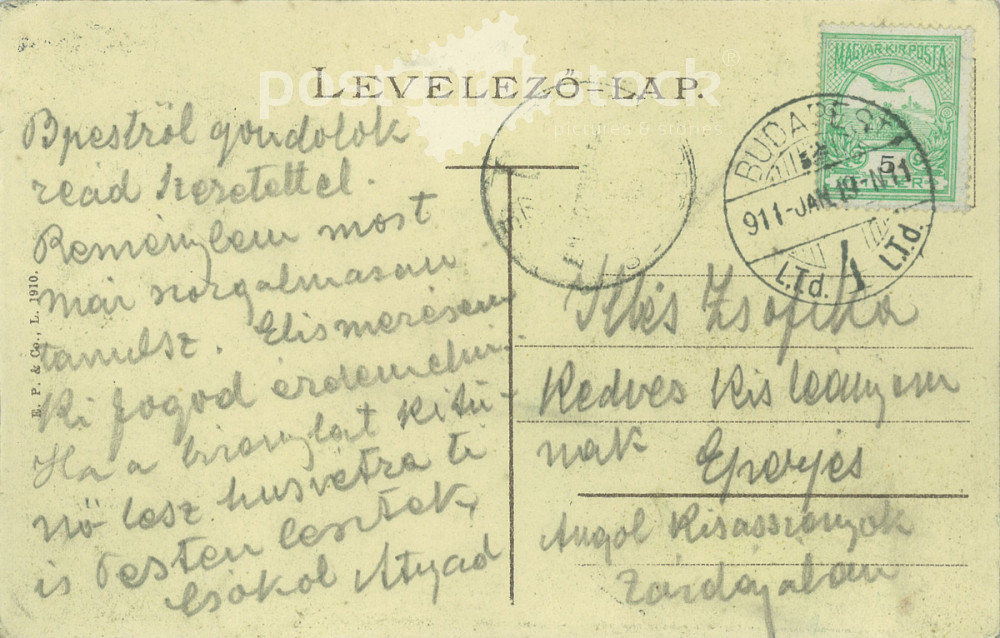 LEVELEZŐ-LAP.
postcardstock®
pictures & stories
MAGYAR KIR. POSTA
5
BUDAPEST
911-JAN 19-N11
L.T.d. 1 L.T.d.
E. P. & Co., L. 1910.
Bpestről gondolok
reád szeretettel.
Reménylem most
már szorgalmasan
tanulsz. Elismerésem
ki fogod érdemelni.
Ha a bizonylat kitü-
nő lesz husvétra ti
is Pesten lesztek,
Csókol Atyád
Illés Zsofika
Kedves Kis leányom
nak Eperjes
Angol Kisasszonyok
Zárdájában